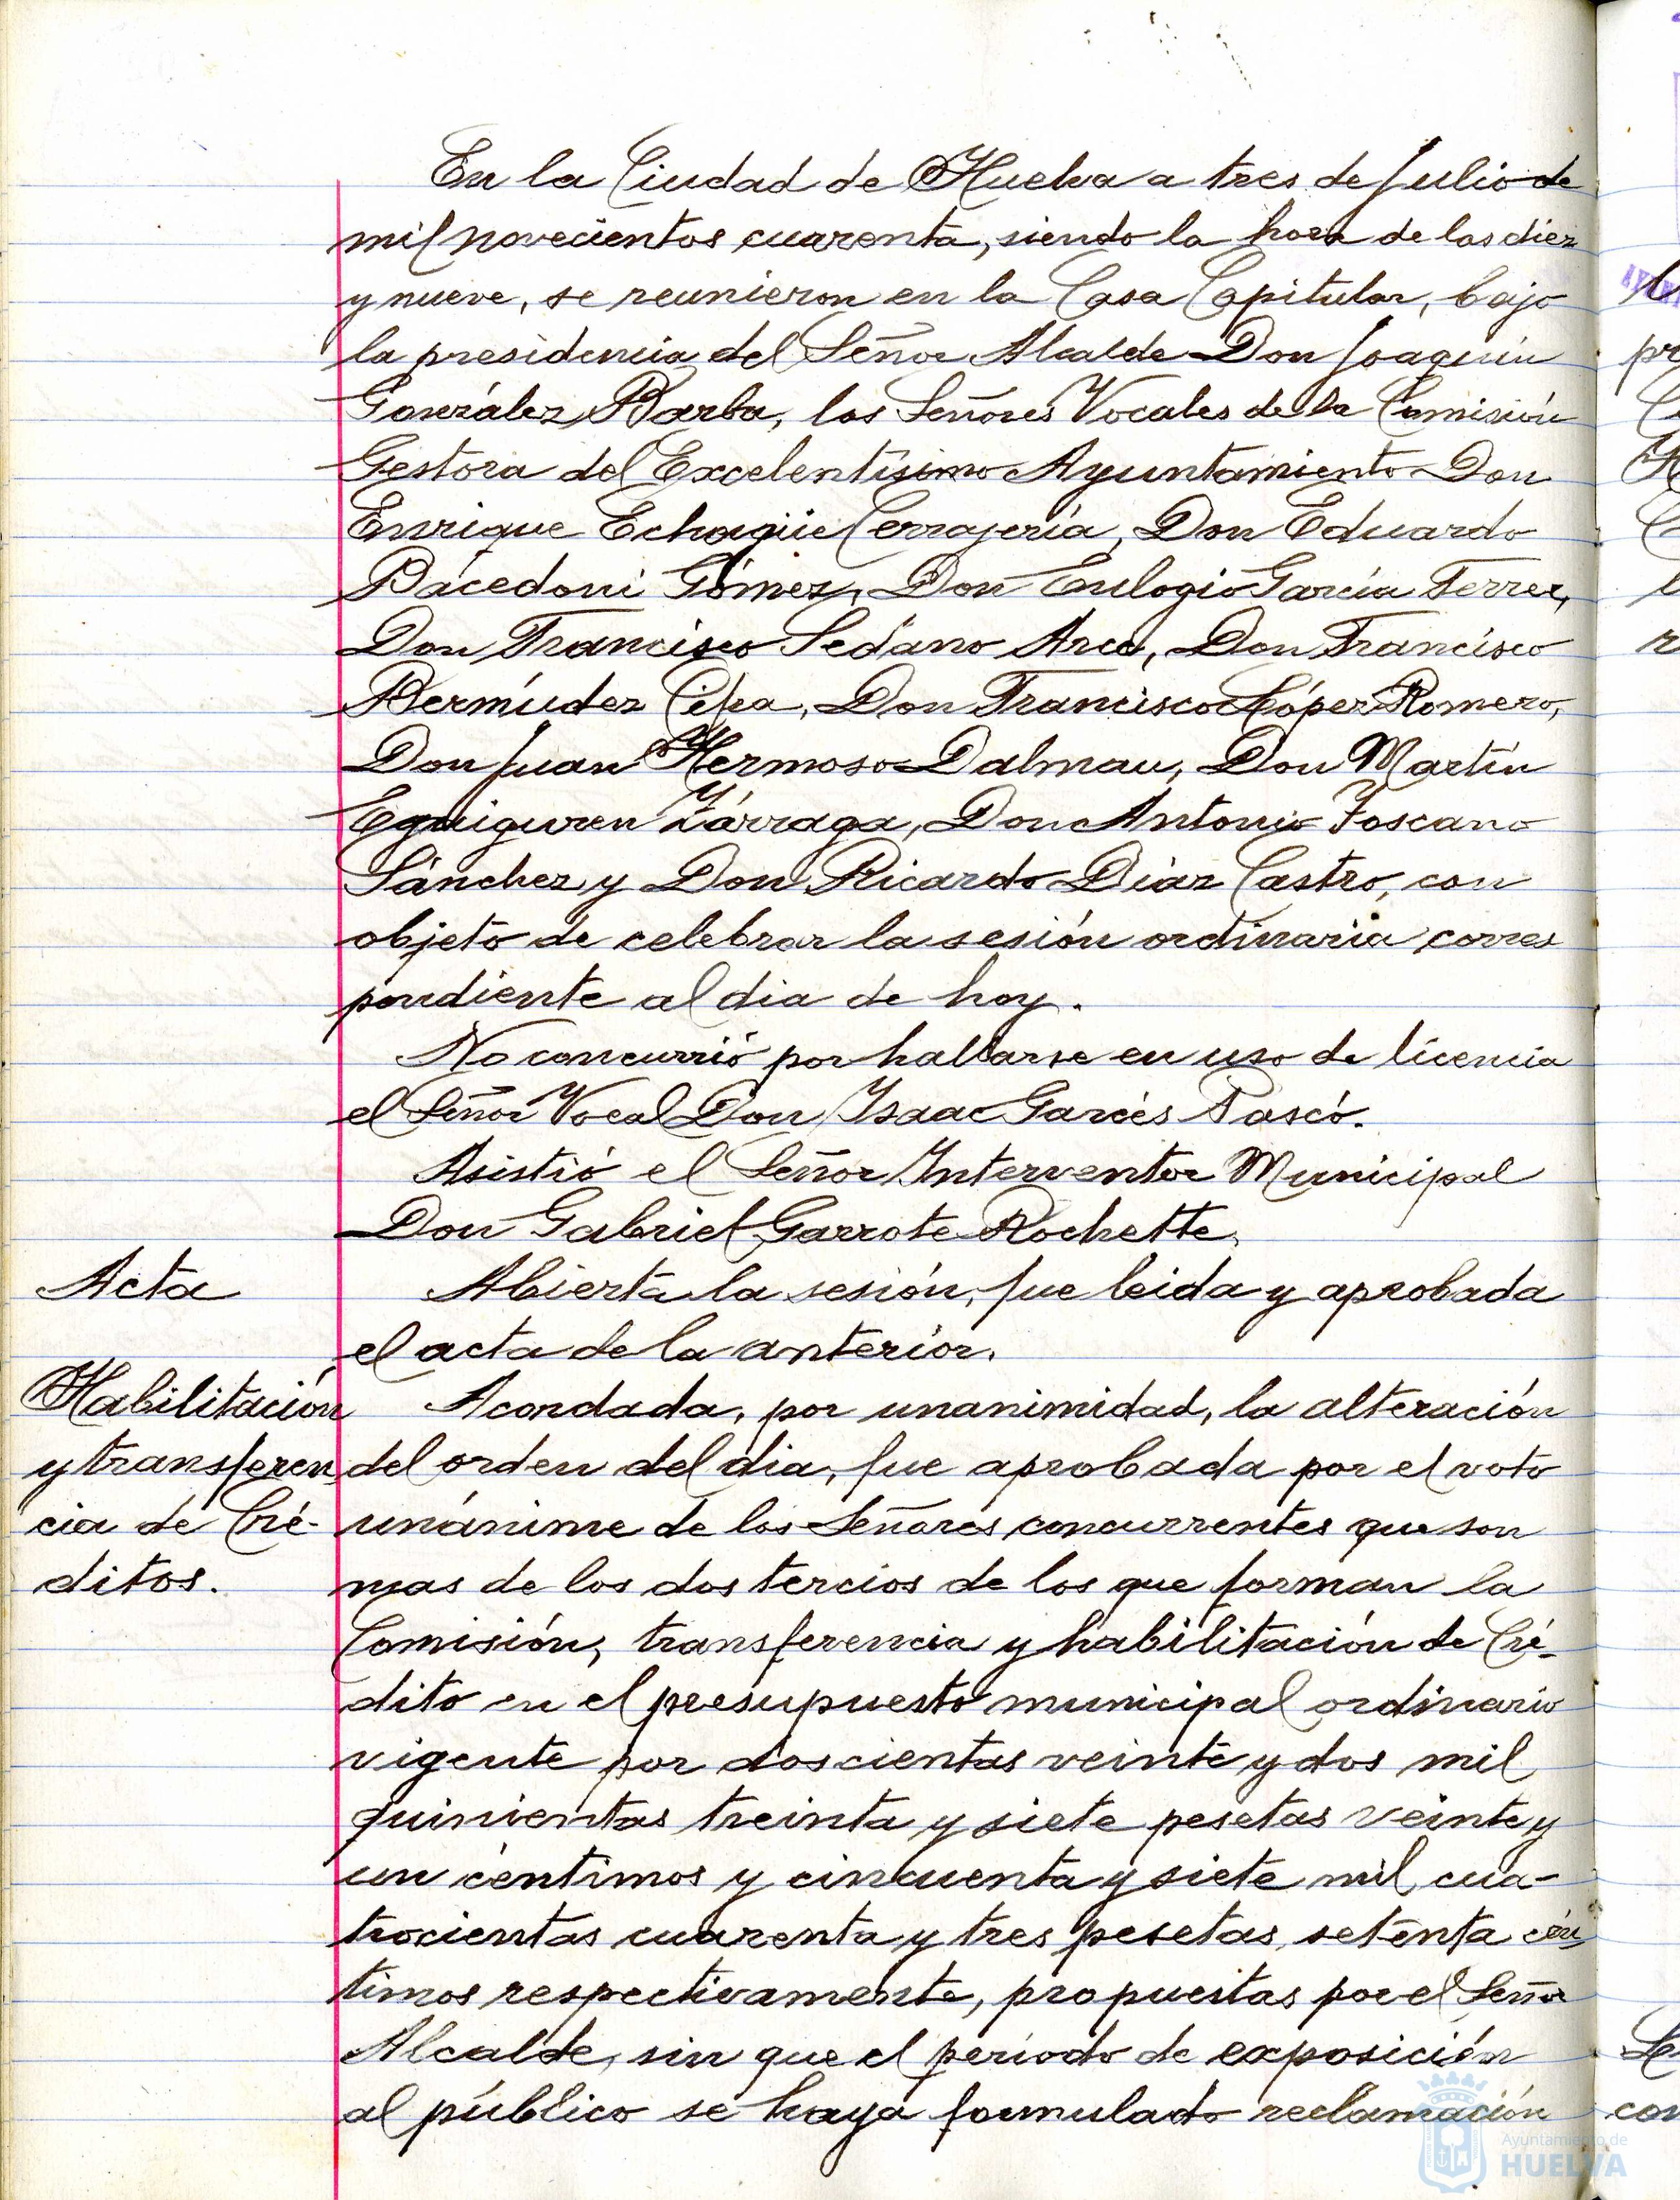 En la Ciudad de Huelva a tres de Julio de
mil novecientos cuarenta, siendo la hora de las diez
y nueve, se reunieron en la Casa Capitular, bajo
la presidencia del Señor Alcalde Don Joaquín
González Barba, los Señores Vocales de la Comisión
Gestora del Excelentísimo Ayuntamiento Don
Enrique Echagüe Cerrajería, Don Eduardo
Bácedoni Gómez, Don Eulogio García Ferrer,
Don Francisco Sedano Arce, Don Francisco
Bermúdez Don Francisco López Romero,
Don Juan Hermoso Dalmau, Don Martín
Eguiguren Zárraga, Don Antonio Toscano
Sánchez y Don Ricardo Díaz Castro, con
objeto de celebrar la sesión ordinaria corres
pondiente al dia de hoy.
No concurrió por hallarse en uso de licencia
el Señor Vocal Don Isaac Garcés Tascó.
Asistió el Señor Interventor Municipal
Don Gabriel Garrote Rochette.
Acta
Abierta la sesión, fue leida y aprobada
el acta de la anterior.
Habilitación
y transferen
cia de Cré-
ditos.
Acordada, por unanimidad, la alteración
del orden del dia, fue aprobada por el voto
unánime de los Señores concurrentes que son
mas de los dos tercios de los que forman la
Comisión, transferencia y habilitación de Cré-
dito en el presupuesto municipal ordinario
vigente por doscientas veinte y dos mil
quinientas treinta y siete pesetas veinte y
un céntimos y cincuenta y siete mil cua-
trocientas cuarenta y tres pesetas setenta cén
timos respectivamente, propuestas por el Señor
Alcalde, sin que el período de exposición
al público se haya formulado reclamación
Ayuntamiento de
HUELVA